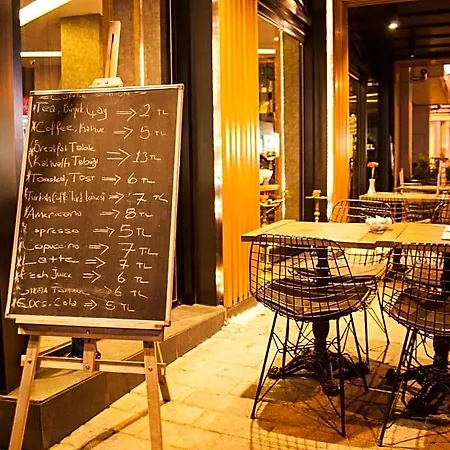 Tea, Büyük Çay ⇒ 2 TL
*Coffee, Kahve ⇒ 5 TL
*Breakfast Table
Kahvaltı Tabağı ⇒ 13 TL
*Toasted, Tost ⇒ 6 TL
*Turkish Coffe ⇒ 7 TL
*Americano ⇒ 8 TL
Espresso ⇒ 5 TL
Capuccino ⇒ 7 TL
Latte ⇒ 7 TL
Juice ⇒ 6 TL
⇒ 6 TL
Cola ⇒ 5 TL